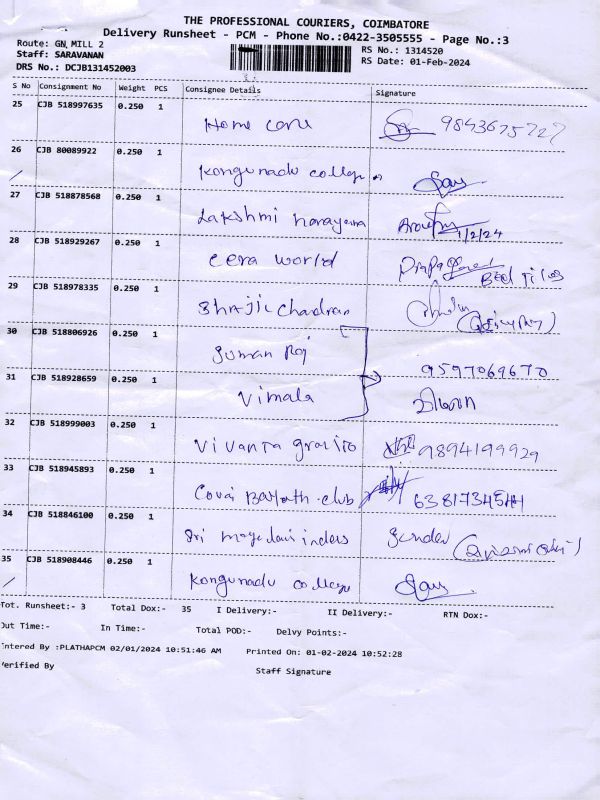 THE PROFESSIONAL COURIERS, COIMBATORE
Delivery Runsheet - PCM - Phone No.:0422-3505555 - Page No.:3
Route: GN MILL 2
Staff: SARAVANAN
DRS No.: DCJB131452003
RS No.: 1314520
RS Date: 01-Feb-2024
S No Consignment No Weight PCS Consignee Details Signature
25 CJB 518997635 0.250 1 Home care 9843675727
26 CJB 80089922 0.250 1 Kongunadu college
27 CJB 518878568 0.250 1 Lakshmi narayana 1/2/24
28 CJB 518929267 0.250 1 cera world
29 CJB 518978335 0.250 1 Shaji chandran
30 CJB 518806926 0.250 1 Suman Raj 9597069670
31 CJB 518928659 0.250 1 Vimala
32 CJB 518999003 0.250 1 Vivanta 9894199929
33 CJB 518945893 0.250 1 Covai club
34 CJB 518846100 0.250 1 Sri
35 CJB 518908446 0.250 1 Kongunadu college
Tot. Runsheet:- 3 Total Dox:- 35 I Delivery:- II Delivery:- RTN Dox:-
Out Time:- In Time:- Total POD:- Delvy Points:-
Entered By :PLATHAPCM 02/01/2024 10:51:46 AM Printed On: 01-02-2024 10:52:28
Verified By Staff Signature